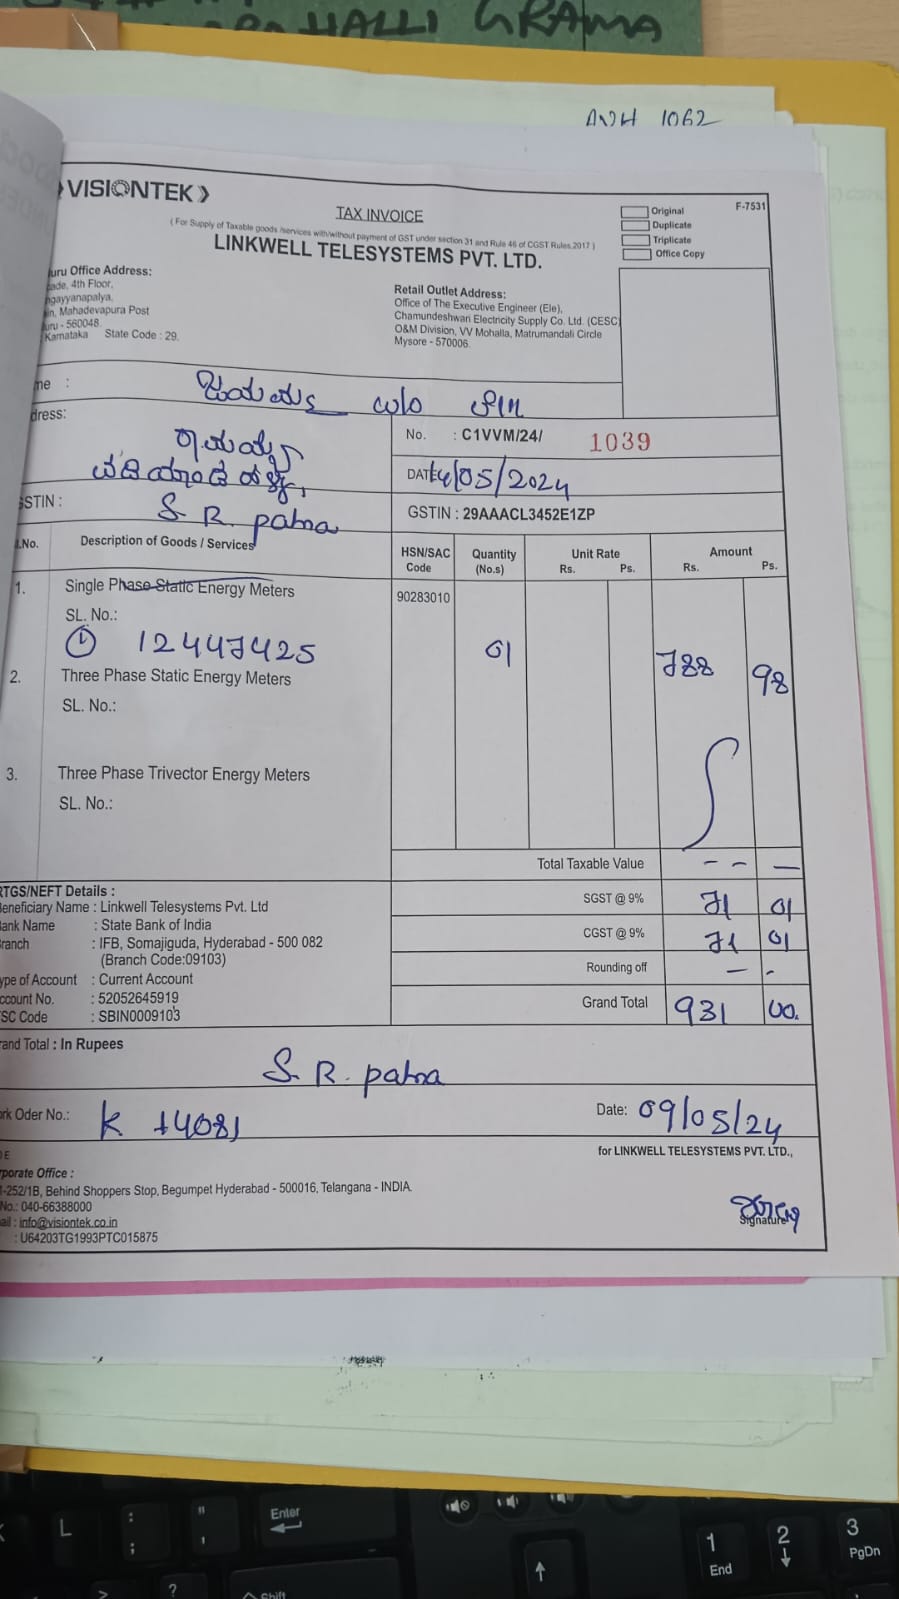 HALLI GRAMA
ANH 1062
VISIONTEK
TAX INVOICE
Original
Duplicate
Triplicate
Office Copy
F-7531
( For Supply of Taxable goods /services with/without payment of GST under section 31 and Rule 46 of CGST Rules,2017 )
LINKWELL TELESYSTEMS PVT. LTD.
uru Office Address:
ade, 4th Floor,
ngayyanapalya,
in, Mahadevapura Post
uru - 560048.
Karnataka State Code : 29.
Retail Outlet Address:
Office of The Executive Engineer (Ele),
Chamundeshwari Electricity Supply Co. Ltd. (CESC
O&M Division, VV Mohalla, Matrumandali Circle
Mysore - 570006.
me :
w/o
dress:
No. : C1VVM/24/ 1039
DATE 14/05/2024
GSTIN :
S. R. patna
GSTIN : 29AAACL3452E1ZP
.No. Description of Goods / Services HSN/SAC Code Quantity (No.s) Unit Rate Rs. Ps. Amount Rs. Ps.
1. Single Phase Static Energy Meters 90283010
SL. No.:
① 12447425 01 788 98
2. Three Phase Static Energy Meters
SL. No.:
3. Three Phase Trivector Energy Meters
SL. No.:
Total Taxable Value - - —
RTGS/NEFT Details :
Beneficiary Name : Linkwell Telesystems Pvt. Ltd
Bank Name : State Bank of India
Branch : IFB, Somajiguda, Hyderabad - 500 082
(Branch Code:09103)
ype of Account : Current Account
ccount No. : 52052645919
SC Code : SBIN0009103
SGST @ 9% 71 01
CGST @ 9% 71 01
Rounding off — -
Grand Total 931 00.
rand Total : In Rupees
S. R. patna
ork Oder No.: K 14081
Date: 09/05/24
for LINKWELL TELESYSTEMS PVT. LTD.,
rporate Office :
1-252/1B, Behind Shoppers Stop, Begumpet Hyderabad - 500016, Telangana - INDIA.
No.: 040-66388000
ail : info@visiontek.co.in
: U64203TG1993PTC015875
Signature
L
:
;
"
'
Enter
?
>
Shift
1
End
2
3
PgDn